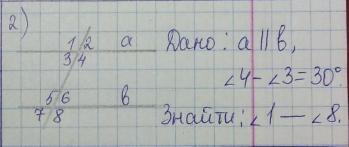 2)
1 2 a
3 4
5 6 b
7 8
Дано: a || b,
∠4-∠3=30°.
Знайти: ∠1 — ∠8.